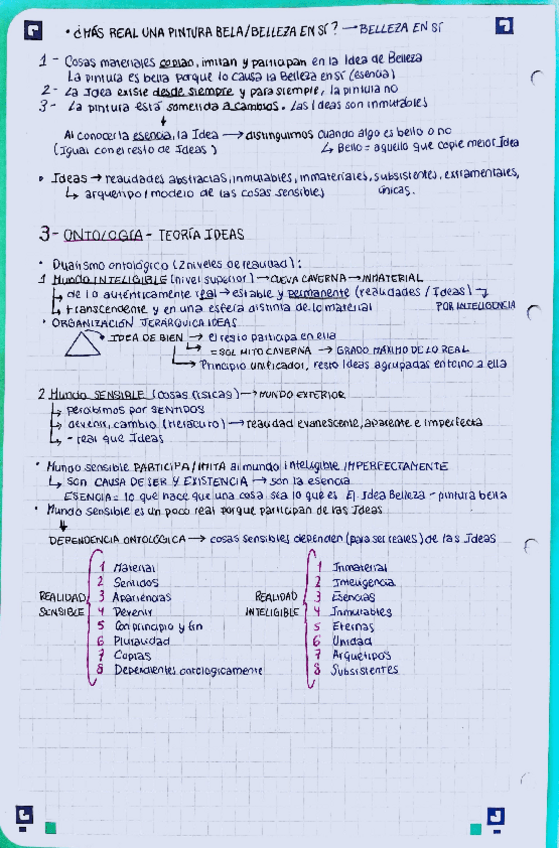 • ¿MÁS REAL UNA PINTURA BELA/BELLEZA EN SÍ? → BELLEZA EN SÍ
1 - Cosas materiales copian, imitan y participan en la Idea de Belleza
La pintura es bella porque lo causa la Belleza en sí (esencia)
2 - La Idea existe desde siempre y para siempre, la pintura no
3 - La pintura está sometida a cambios. Las Ideas son inmutables
Al conocer la esencia, la Idea → distinguimos cuando algo es bello o no
(Igual con el resto de Ideas) ↳ Bello = aquello que copie mejor Idea
• Ideas → realidades abstractas, inmutables, inmateriales, subsistentes, extramentales,
↳ arquetipo/modelo de las cosas sensibles únicas.
3 - ONTOLOGÍA - TEORÍA IDEAS
• Dualismo ontológico (2 niveles de realidad):
1 Mundo INTELIGIBLE (nivel superior) → CUEVA CAVERNA → INMATERIAL
↳ de lo auténticamente real → estable y permanente (realidades / Ideas)
↳ transcendente y en una esfera distinta de lo material POR INTELIGENCIA
• ORGANIZACIÓN JERÁRQUICA IDEAS
IDEA DE BIEN → el resto participa en ella
↳ = SOL MITO CAVERNA → GRADO MÁXIMO DE LO REAL
↳ Principio unificador, resto Ideas agrupadas entorno a ella
2 Mundo SENSIBLE (cosas físicas) → MUNDO EXTERIOR
↳ percibimos por SENTIDOS
↳ devenir, cambio (Heráclito) → realidad evanescente, aparente e imperfecta
↳ - real que Ideas
• Mundo sensible PARTICIPA/IMITA al mundo inteligible IMPERFECTAMENTE
↳ son CAUSA DE SER Y EXISTENCIA → son la esencia
ESENCIA = lo que hace que una cosa sea lo que es Ej Idea Belleza - pintura bella
• Mundo sensible es un poco real porque participan de las Ideas
DEPENDENCIA ONTOLÓGICA → cosas sensibles dependen (para ser reales) de las Ideas
REALIDAD SENSIBLE
1 Material
2 Sentidos
3 Apariencias
4 Devenir
5 Con principio y fin
6 Pluralidad
7 Copias
8 Dependientes ontologicamente
REALIDAD INTELIGIBLE
1 Inmaterial
2 Inteligencia
3 Esencias
4 Inmutables
5 Eternas
6 Unidad
7 Arquetipos
8 Subsistentes